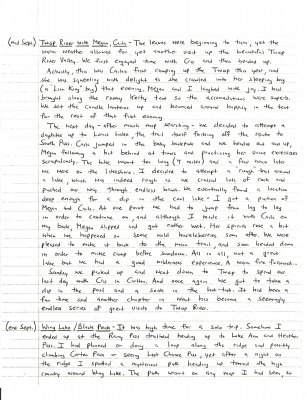 (mid Sept.) Twisp River with Megan, Cade - The leaves were beginning to turn, yet the
warm weather allowed for yet another visit up the beautiful Twisp
River Valley. We first enjoyed time with Cris and then headed up.
Actually, this was Cade's first camping up the Twisp this year, and
she was squealing with delight as she crawled into her sleeping bag
(a "Lion King" bag) that evening. Megan and I laughed with joy. I had
brought along the roomy Kelty tent so the accomodations were superb.
We set the candle lantern up and bounced around happily in the tent
for the rest of that first evening.
The next day - after much map searching - we decided to attempt a
dayhike up to Louis Lake, the trail itself forking off the route to
South Pass. Cade jumped in the baby backpack and we headed out and up,
Megan following a bit behind at times and practicing her snow exercises
scrupulously. The hike wasn't too long (7 miles) and a few hours later
we were on the lakeshore. I decided to attempt a rough trail around
a lake, which was indeed rough as we crossed lots of rock and
pushed our way through endless brush. We eventually found a location
deep enough for a dip in the cool lake - I got a picture of
Megan and Cade. At one point we had to jump from log to log
in order to continue on, and although I made it with Cade on
my back, Megan slipped and got rather wet. Her spirits rose a bit
when we happened on some wild huckleberries soon after. We were
pleased to make it back to the main trail, and soon headed down
in order to make camp before sundown. All in all, not a great
hike but we had a good wilderness experience. A warm fire followed...
Sunday we packed up and went down to Twisp to spend our
last day with Cris in Carlton. And once again we got to take a
dip in the pool and a soak in the hot-tub. It had been a
fun time and another chapter in what has become a seemingly
endless series of great visits to Twisp River.
(end Sept.) Wing Lake / Black Peak - It was high time for a solo trip. Somehow I
ended up at the Rainy Pass trailhead heading up to Lake Ann and Heather
Pass. I had planned on doing a loop along the ridge and possibly
climbing Corteo Peak or seeing Last Chance Pass, yet after a night on
the ridge I spotted a mysterious path heading up toward the high
country around Wing Lake. The path wasn't on any map I had seen, so